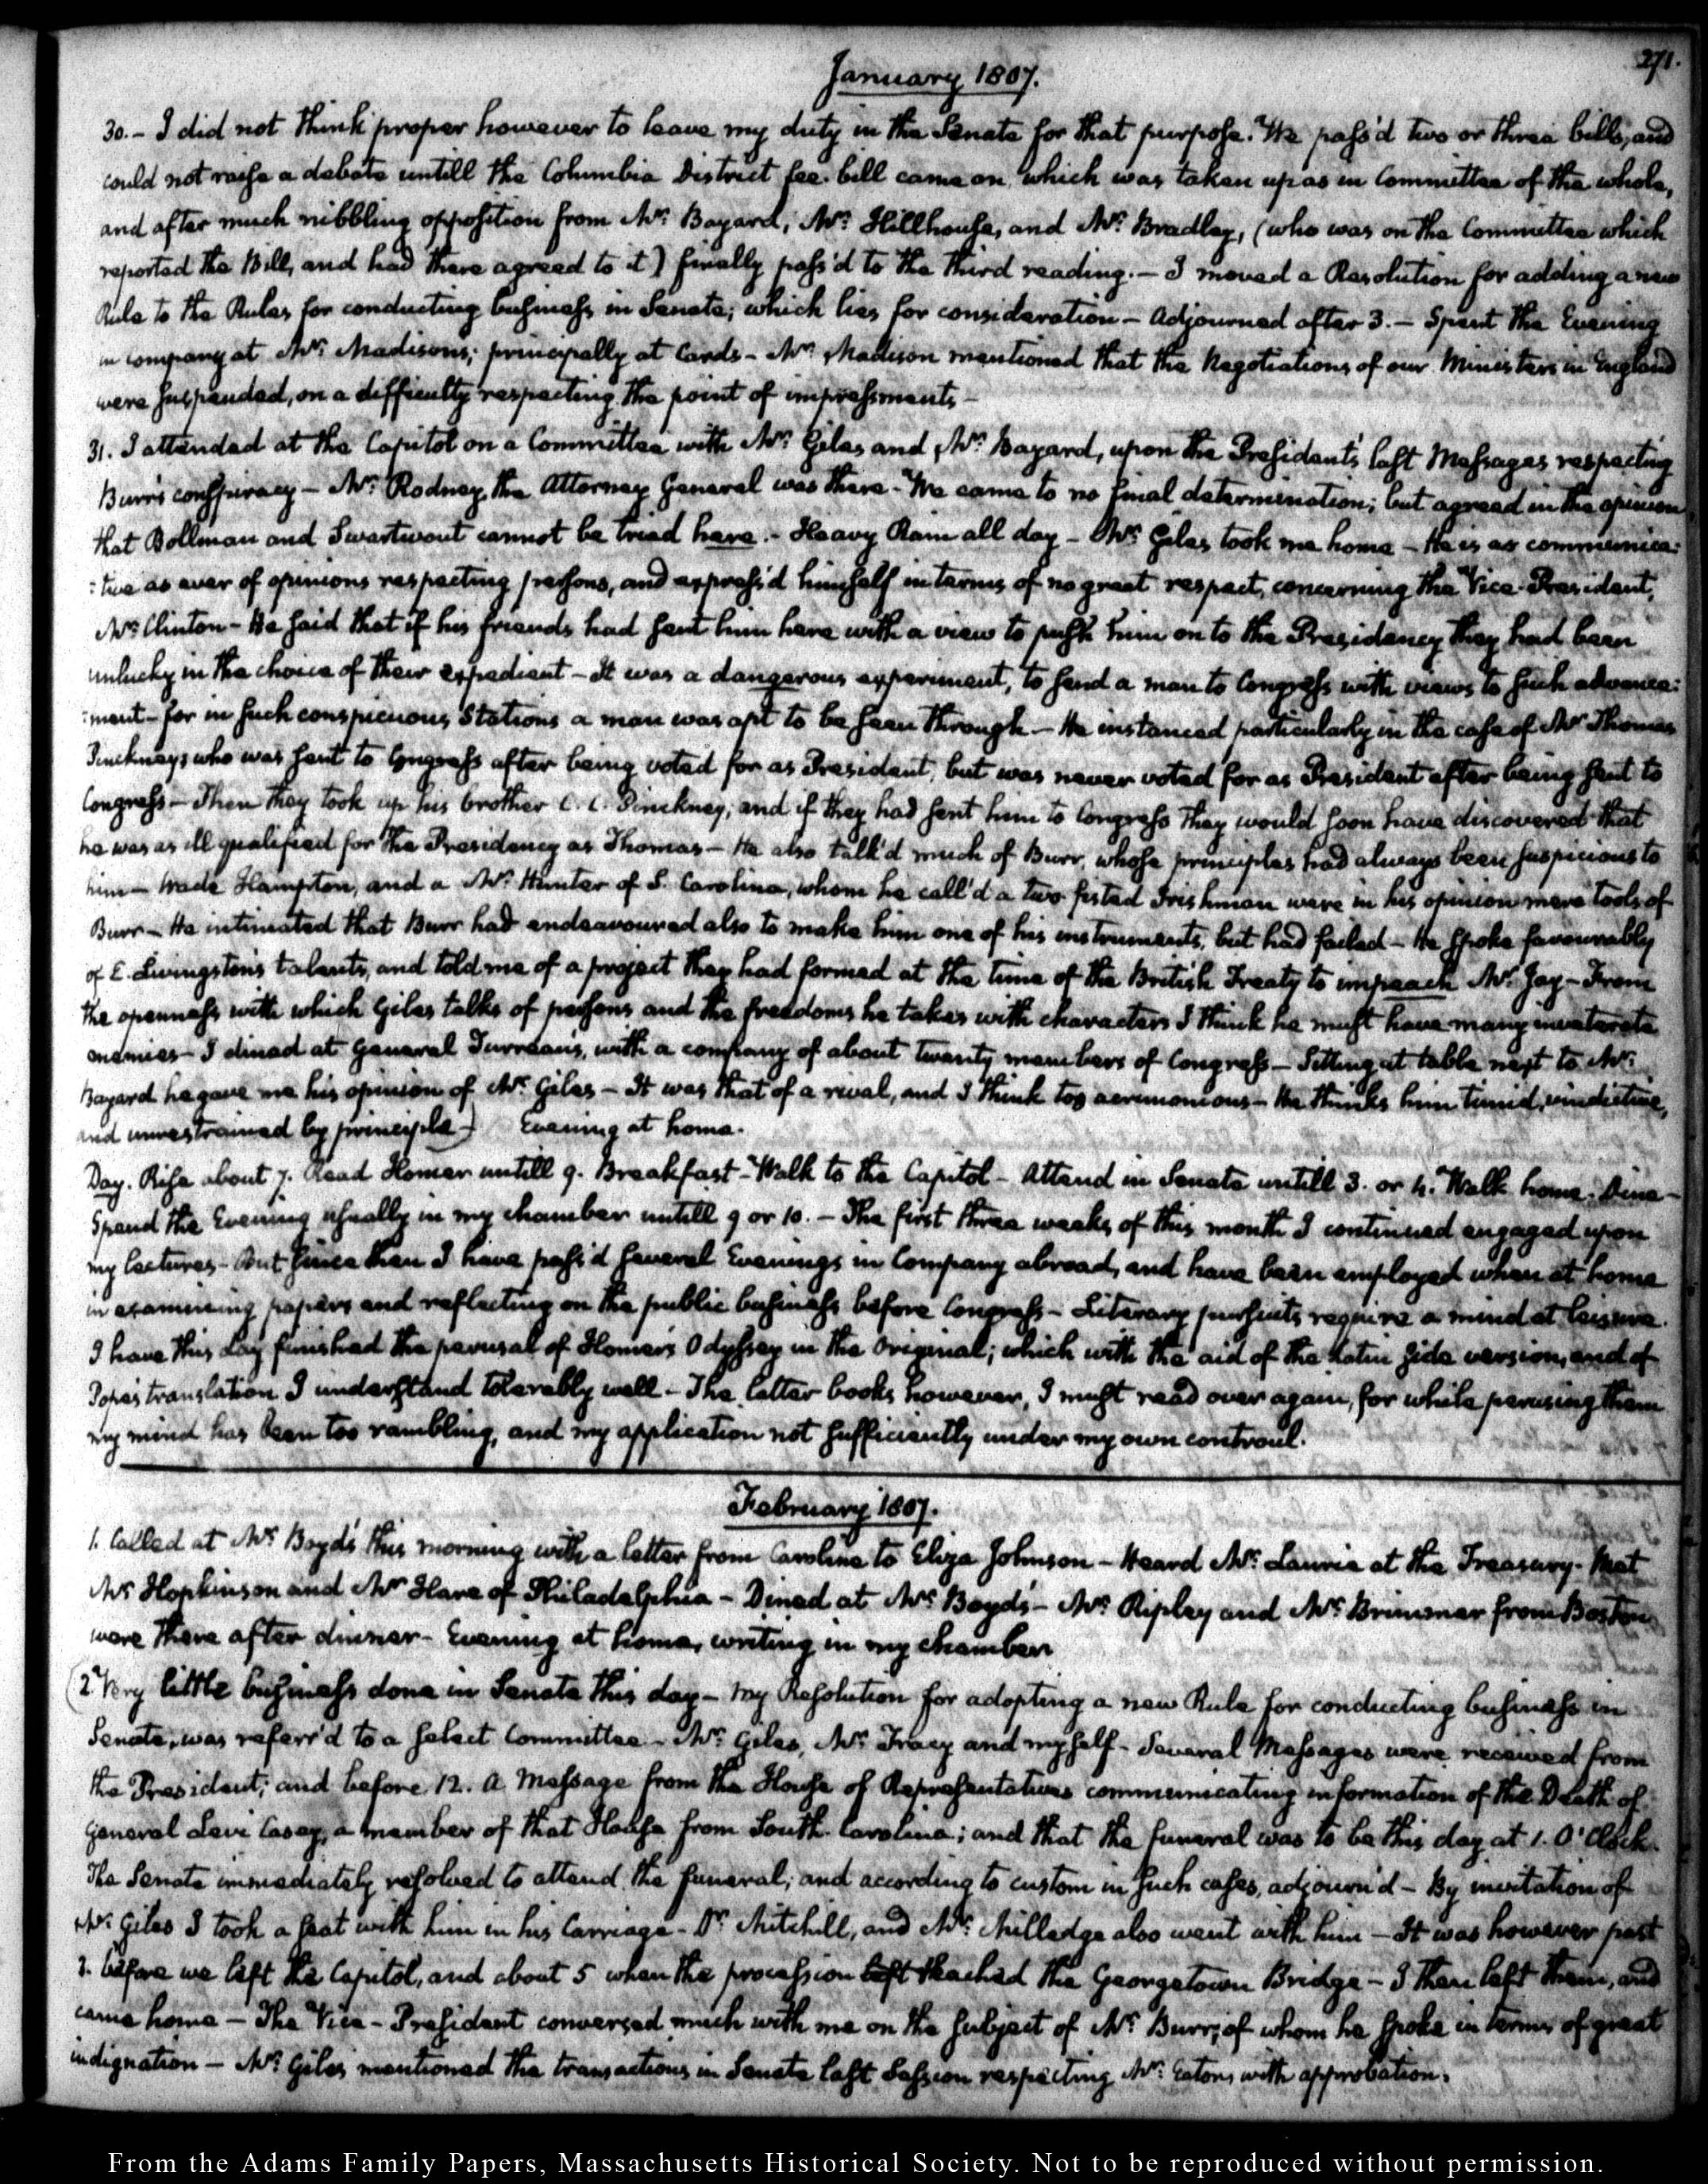 271.
January 1807.
30.- I did not think proper however to leave my duty in the Senate for that purpose. We pass'd two or three bills, and
could not raise a debate untill the Columbia District fee bill came on, which was taken up as in Committee of the whole,
and after much nibbling opposition from Mr: Bayard, Mr: Hillhouse, and Mr: Bradley, (who was on the Committee which
reported the Bill, and had there agreed to it) finally pass'd to the third reading.- I moved a Resolution for adding a new
Rule to the Rules for conducting business in Senate; which lies for consideration- Adjourned after 3.- Spent the Evening
in company at Mr: Madisons; principally at Cards- Mr: Madison mentioned that the Negotiations of our Ministers in England
were suspended, on a difficulty respecting the point of impressments-
31. I attended at the Capitol on a Committee with Mr: Giles and Mr: Bayard, upon the President's last Messages respecting
Burr's conspiracy- Mr: Rodney, the Attorney General was there- We came to no final determination; but agreed in the opinion
that Bollman and Swartwout cannot be tried here.- Heavy Rain all day- Mr: Giles took me home- He is as communica:
:tive as ever of opinions respecting persons, and express'd himself in terms of no great respect, concerning the Vice-President,
Mr: Clinton- He said that if his friends had sent him here with a view to push him on to the Presidency they had been
unlucky in the choice of their expedient- It was a dangerous experiment, to send a man to Congress with views to such advance:
:ment- for in such conspicuous Stations a man was apt to be seen through- He instanced particularly in the case of Mr Thomas
Pinckney; who was sent to Congress after being voted for as President, but was never voted for as President after being sent to
Congress- Then they took up his brother C. C. Pinckney; and if they had sent him to Congress they would soon have discovered that
he was as ill qualified for the Presidency as Thomas- He also talk'd much of Burr, whose principles had always been suspicious to
him- Wade Hampton, and a Mr: Hunter of S. Carolina, whom he call'd a two fisted Irishman were in his opinion mere tools of
Burr- He intimated that Burr had endeavoured also to make him one of his instruments, but had failed- He spoke favourably
of E. Livingston's talents, and told me of a project they had formed at the time of the British Treaty to impeach Mr: Jay- From
the openness with which Giles talks of persons and the freedoms he takes with characters I think he must have many inveterate
enemies- I dined at General Turreau's, with a company of about twenty members of Congress- Sitting at table next to Mr:
Bayard he gave me his opinion of Mr: Giles- It was that of a rival, and I think too acrimonious- He thinks him timid, vindictive,
and unrestrained by principle-) Evening at home.
Day. Rise about 7. Read Homer untill 9. Breakfast- Walk to the Capitol- Attend in Senate untill 3. or 4. Walk home. Dine-
Spend the Evening usually in my chamber untill 9 or 10.- The first three weeks of this month I continued engaged upon
my lectures- But since then I have pass'd several Evenings in Company abroad, and have been employed when at home
in examining papers and reflecting on the public business before Congress- Literary pursuits require a mind at leisure.
I have this day finished the perusal of Homer's Odyssey in the Original; which with the aid of the Latin side version, and of
Pope's translation I understand tolerably well- The latter books however, I must read over again, for while perusing them
my mind has been too rambling, and my application not sufficiently under my own controul.
February 1807.
1. Called at Mr: Boyd's this morning with a letter from Caroline to Eliza Johnson- Heard Mr: Laurie at the Treasury. Met
Mr: Hopkinson and Mr Hare of Philadelphia- Dined at Mr: Boyd's- Mr: Ripley and Mr: Brimmer from Boston
were there after dinner- Evening at home, writing in my chamber.
2. Very little business done in Senate this day- My Resolution for adopting a new Rule for conducting business in
Senate, was referr'd to a select Committee- Mr: Giles, Mr: Tracy and myself- Several Messages were received from
the President; and before 12. a Message from the House of Representatives communicating information of the Death of
General Levi Casey, a member of that House from South Carolina; and that the funeral was to be this day at 1. O'Clock.
The Senate immediately resolved to attend the funeral; and according to custom in such cases, adjourn'd- By invitation of
Mr: Giles I took a seat with him in his Carriage- Dr: Mitchill, and Mr: Milledge also went with him- It was however past
3. before we left the Capitol, and about 5 when the procession left reached the Georgetown Bridge- I then left them, and
came home- The Vice-President conversed much with me on the subject of Mr: Burr; of whom he spoke in terms of great
indignation- Mr: Giles mentioned the transactions in Senate last Session respecting Mr: Eaton, with approbation.
From the Adams Family Papers, Massachusetts Historical Society. Not to be reproduced without permission.